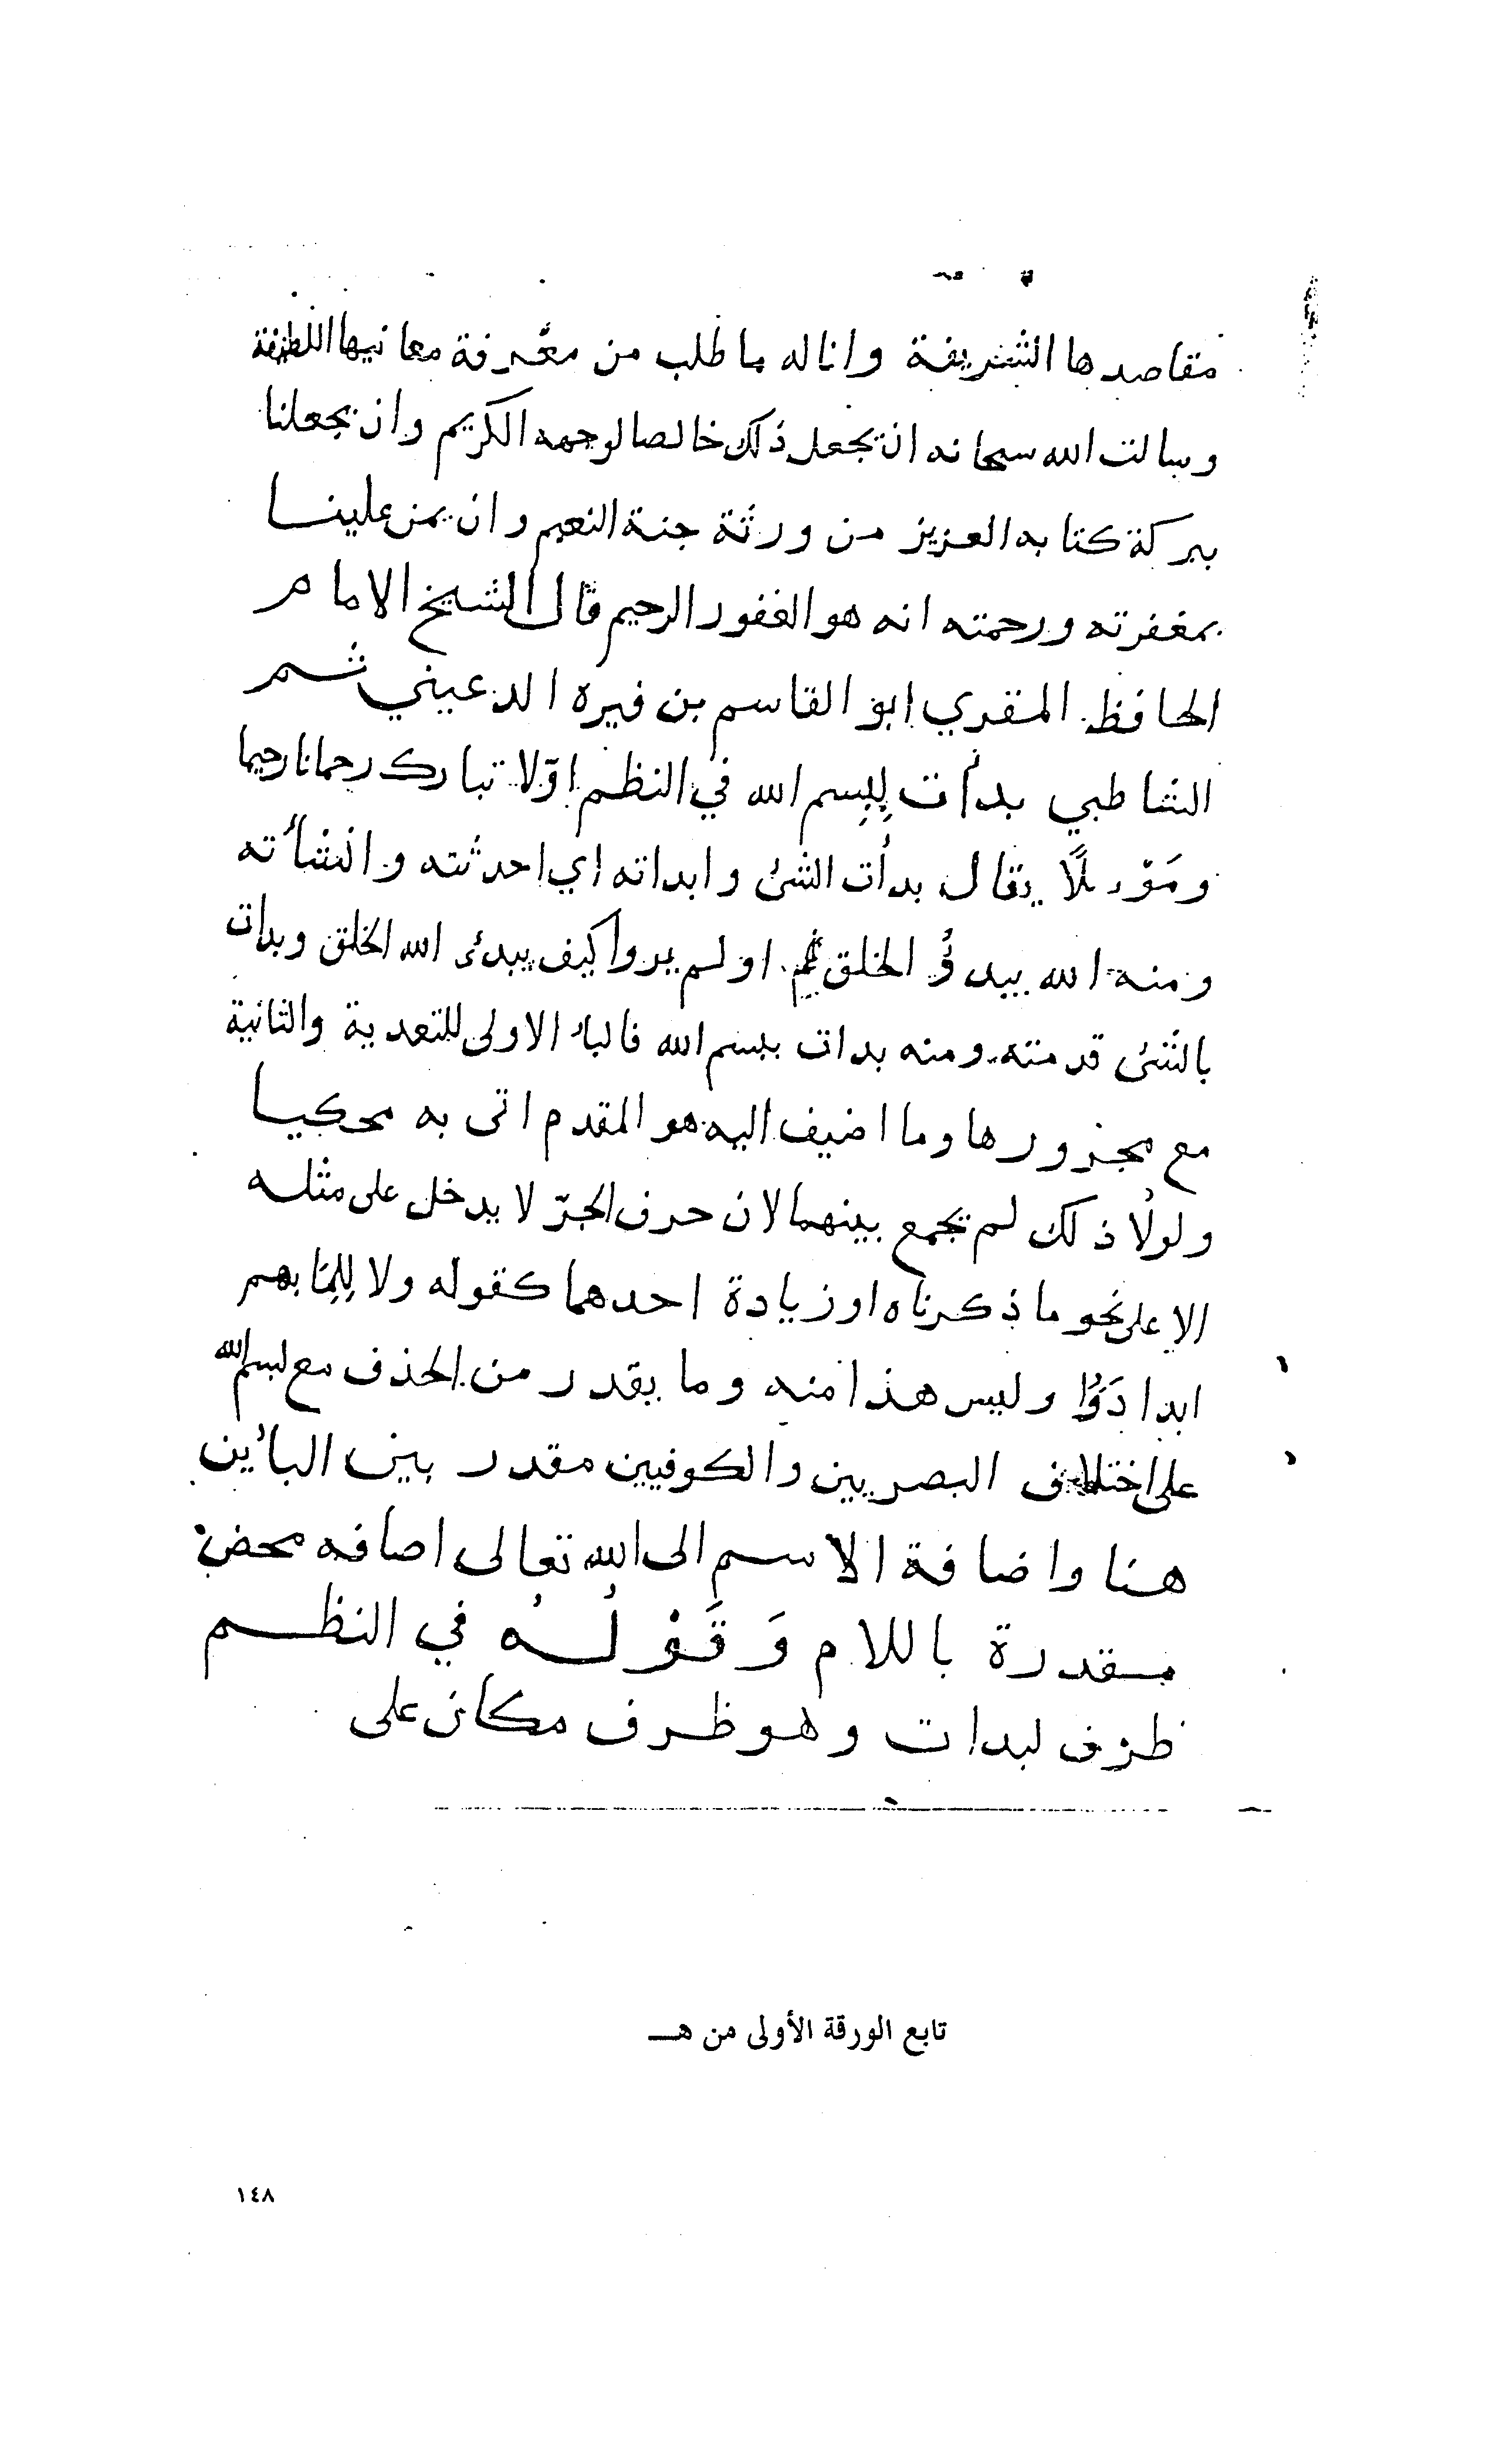 مقاصدها الشريفة واناله ما طلب من معرفة معانيها اللطيفة
وسالت الله سبحانه ان يجعل ذلك خالصا لوجهه الكريم وان يجعلنا
ببركة كتابه العزيز من ورثة جنة النعيم وان يمن علينا
بمغفرته ورحمته انه هو الغفور الرحيم قال الشيخ الامام
الحافظ المقري ابو القاسم بن فيره الرعيني ثم
الشاطبي بدأت ببسم الله في النظم اوّلا تبارك رحمانا رحيما
ومَوْئلًا يقال بدأت الشئ وابداته اي احدثته وانشأته
ومنه الله يبدؤُ الخلق ثم اولم يروا كيف يبدئ الله الخلق وبدات
بالشئ قدمته ومنه بدات ببسم الله فالباء الاولى للتعدية والثانية
مع مجزورها وما اضيف اليه هو المقدم اتى به محكيا
ولولا ذلك لم يجمع بينهما لان حرف الجرّ لا يدخل على مثله
الا على نحو ما ذكرناه او زيادة احدهما كقوله ولا لِلِمَا بهم
ابدا دَوَُا وليس هذا منه وما يقدر من الحذف مع بسم الله
على اختلاف البصريين والكوفيين مقدر بين البائين
هنا واضافة الاسم الى الله تعالى اصافه محض
مقدرة باللام وَقَوْلُهُ في النظم
ظرف لبدات وهو ظرف مكان على
تابع الورقة الأولى من هـ
١٤٨